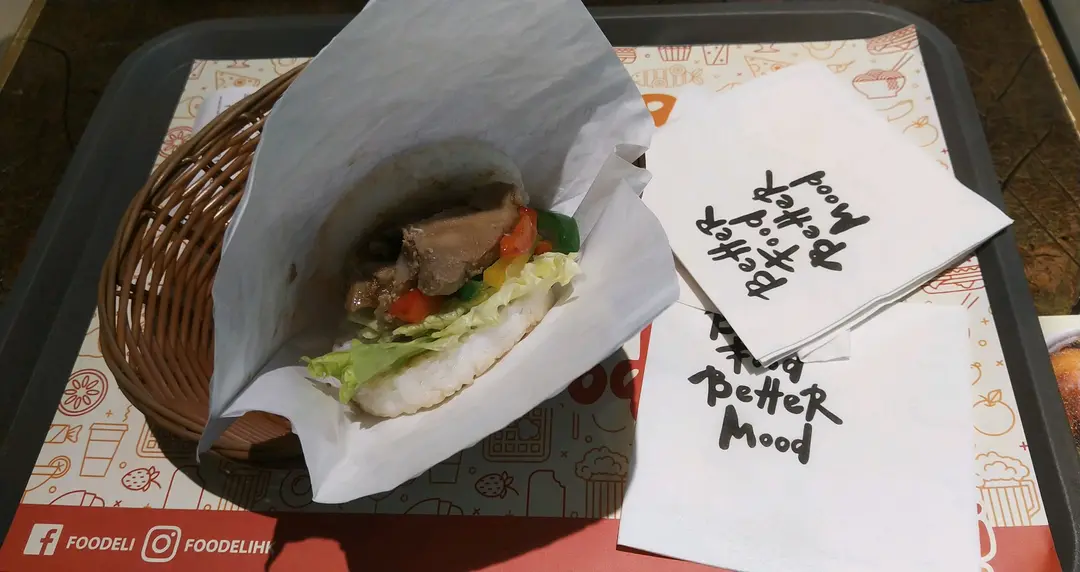 Better
Food
Better
Mood
Food
Better
Mood
FOODELI
FOODELIHK